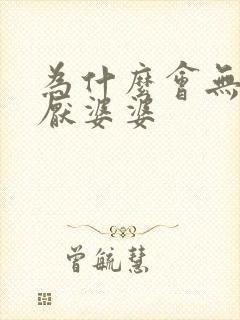 為什麼會無
厭婆婆
曾毓慧